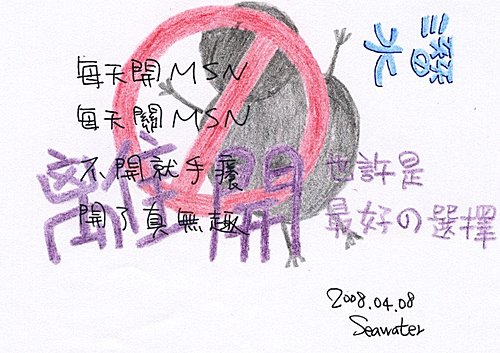 潛水
每天開MSN
每天關MSN
不開就手癢
開了真無趣
離開
也許是
最好の選擇
2008.04.08
Seawater